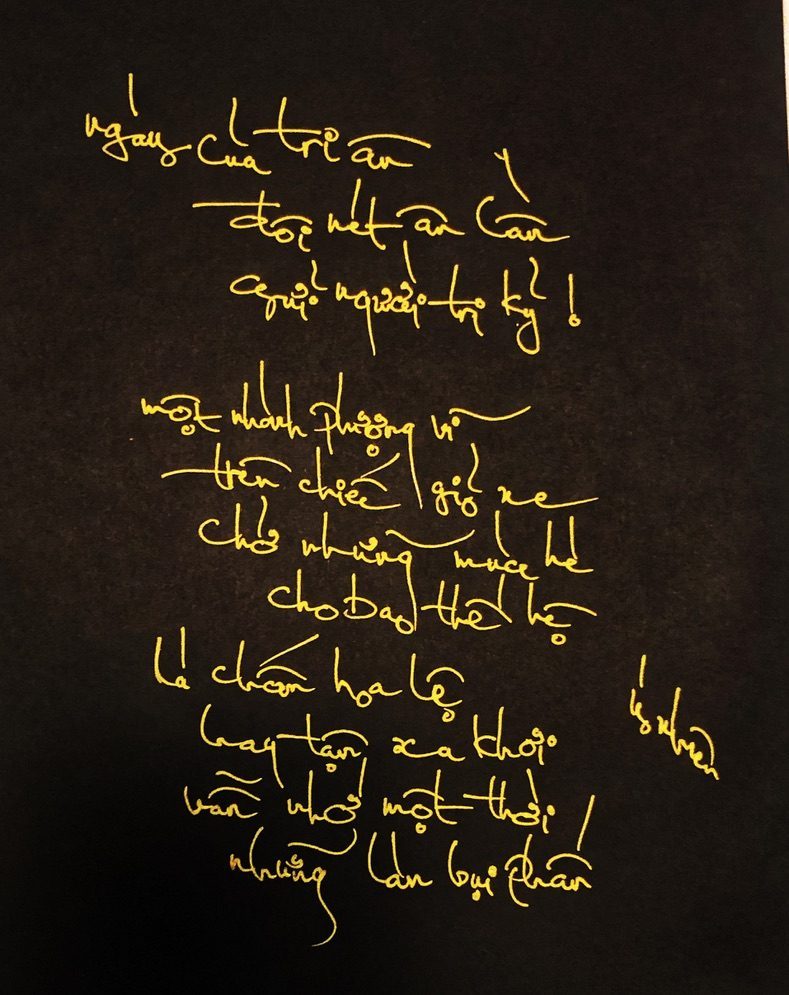 ngày của tri ân
đôi nét ân cần
gửi người tri kỷ!
một nhành phượng vĩ
trên chiếc giỏ xe
chở những mùa hè
cho bao thế hệ
là chốn hoa lệ
hay tận xa khơi
vẫn nhớ một thời
những làn bụi phấn